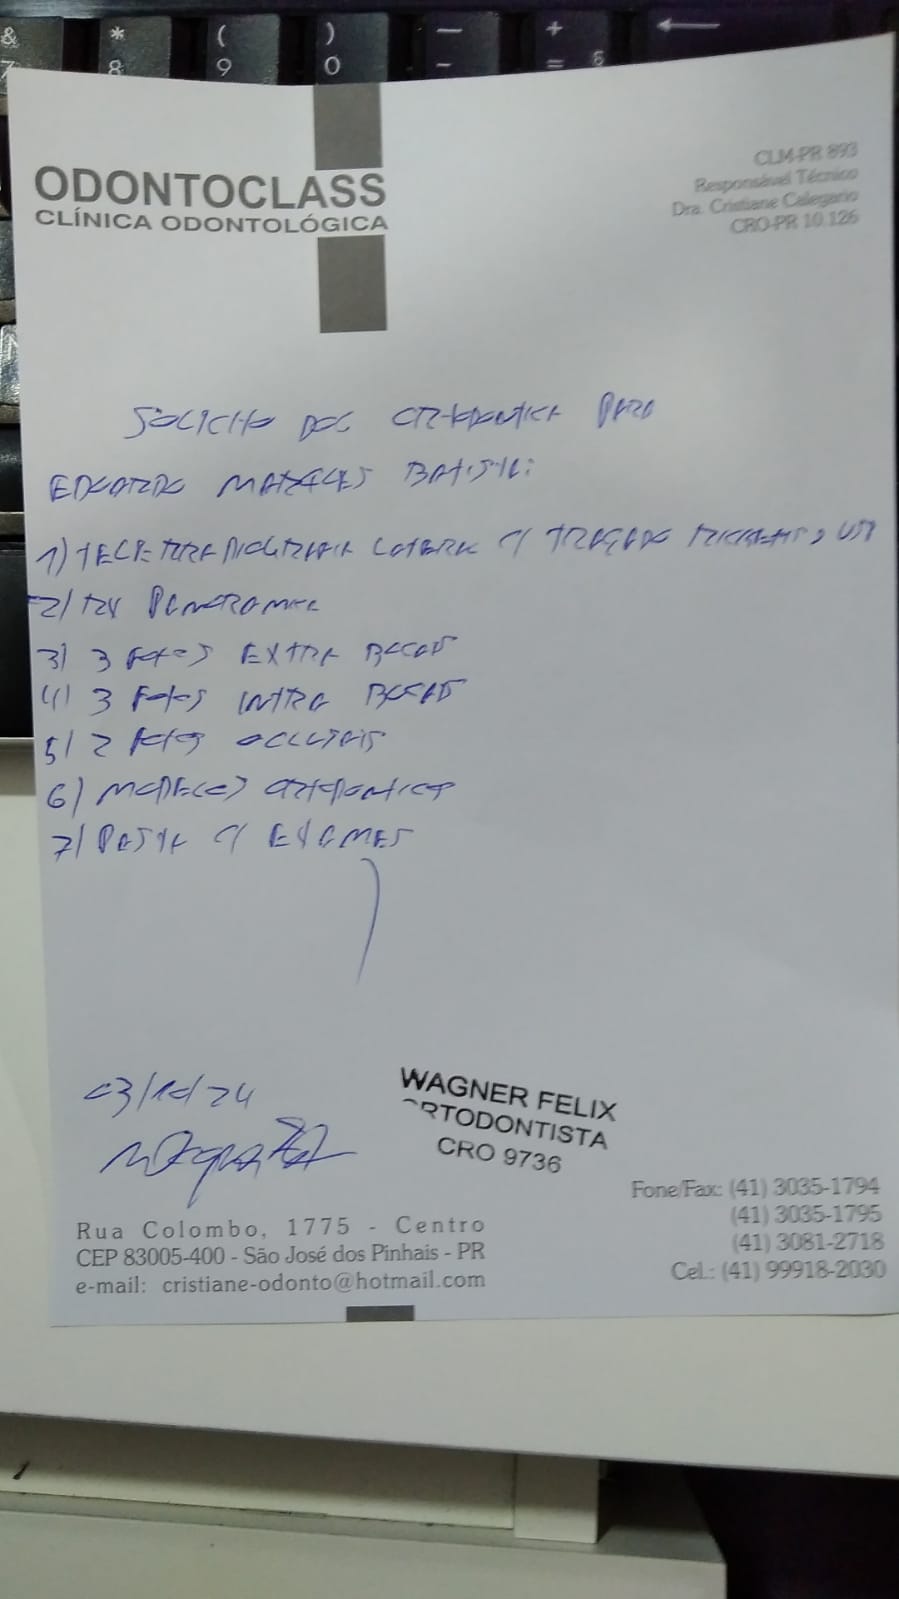 & * ( ) — + ←
7 8 9 0 - = §
ODONTOCLASS
CLÍNICA ODONTOLÓGICA
CLM-PR 893
Responsável Técnico
Dra. Cristiane Calegario
CRO-PR 10.126
SOLICITO DOC ORTODONTICA PARA
EDUARDO BATISTI
1) LATERAL C/ TRAÇADO USP
2) RX PANORAMICA
3) 3 FOTOS EXTRA BUCAIS
4) 3 FOTOS INTRA BUCAIS
5) 2 FOTOS OCLUSAIS
6) MODELOS ORTODONTICOS
7) PASTA C/ EXAMES
03/10/24
WAGNER FELIX
ORTODONTISTA
CRO 9736
Rua Colombo, 1775 - Centro
CEP 83005-400 - São José dos Pinhais - PR
e-mail: cristiane-odonto@hotmail.com
Fone/Fax: (41) 3035-1794
(41) 3035-1795
(41) 3081-2718
Cel.: (41) 99918-2030